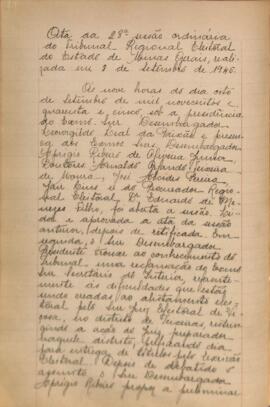 Ata da 28ª sessão ordinária
do Tribunal Regional Eleitoral
do Estado de Minas Gerais, reali-
zada em 8 de Setembro de 1945.
Às nove horas do dia oito
de Setembro de mil novecentos e
quarenta e cinco, sob a presidência
do Exmo Snr. Desembargador
Leal da Paixão e presen-
ça dos Exmos Snrs. Desembargador
Aprigio Ribeiro de Oliveira Junior,
Doutores Arnaldo
de Moura, José Alcides Pereira,
e do Procurador Regio-
nal Eleitoral Dr Eduardo de Me-
nezes Filho, foi aberta a sessão. Li-
da e aprovada a ata da sessão
anterior, depois de retificada. Em
seguida, o Snr Desembargador
Presidente trouxe ao conhecimento do
Tribunal uma reclamação do Exmo
Snr Secretário do Interior,
às dificuldades que estão
sendo creadas ao alistamento elei-
toral pelo Snr Juiz Eleitoral de Vi-
çosa, no distrito de Teixeiras,
a ação do Juiz preparador
naquele distrito,
para entrega de titulos pelo Escrivão
Eleitoral. Depois de debatido o
assunto, o Snr Desembargador
Aprigio Ribeiro propoz a preliminar